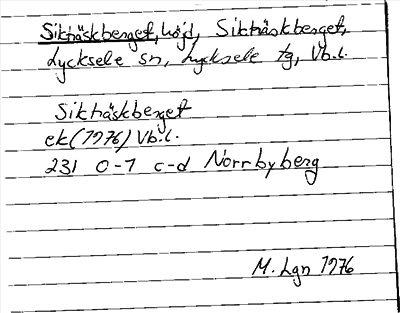 Sikträskberget, höjd, Sikträskberget,
Lycksele sn, Lycksele tg, Vb.l.
Sikträskberget
ek (1976) Vb.l.
231 0-1 c-d Norrbyberg
M. Lgn 1976